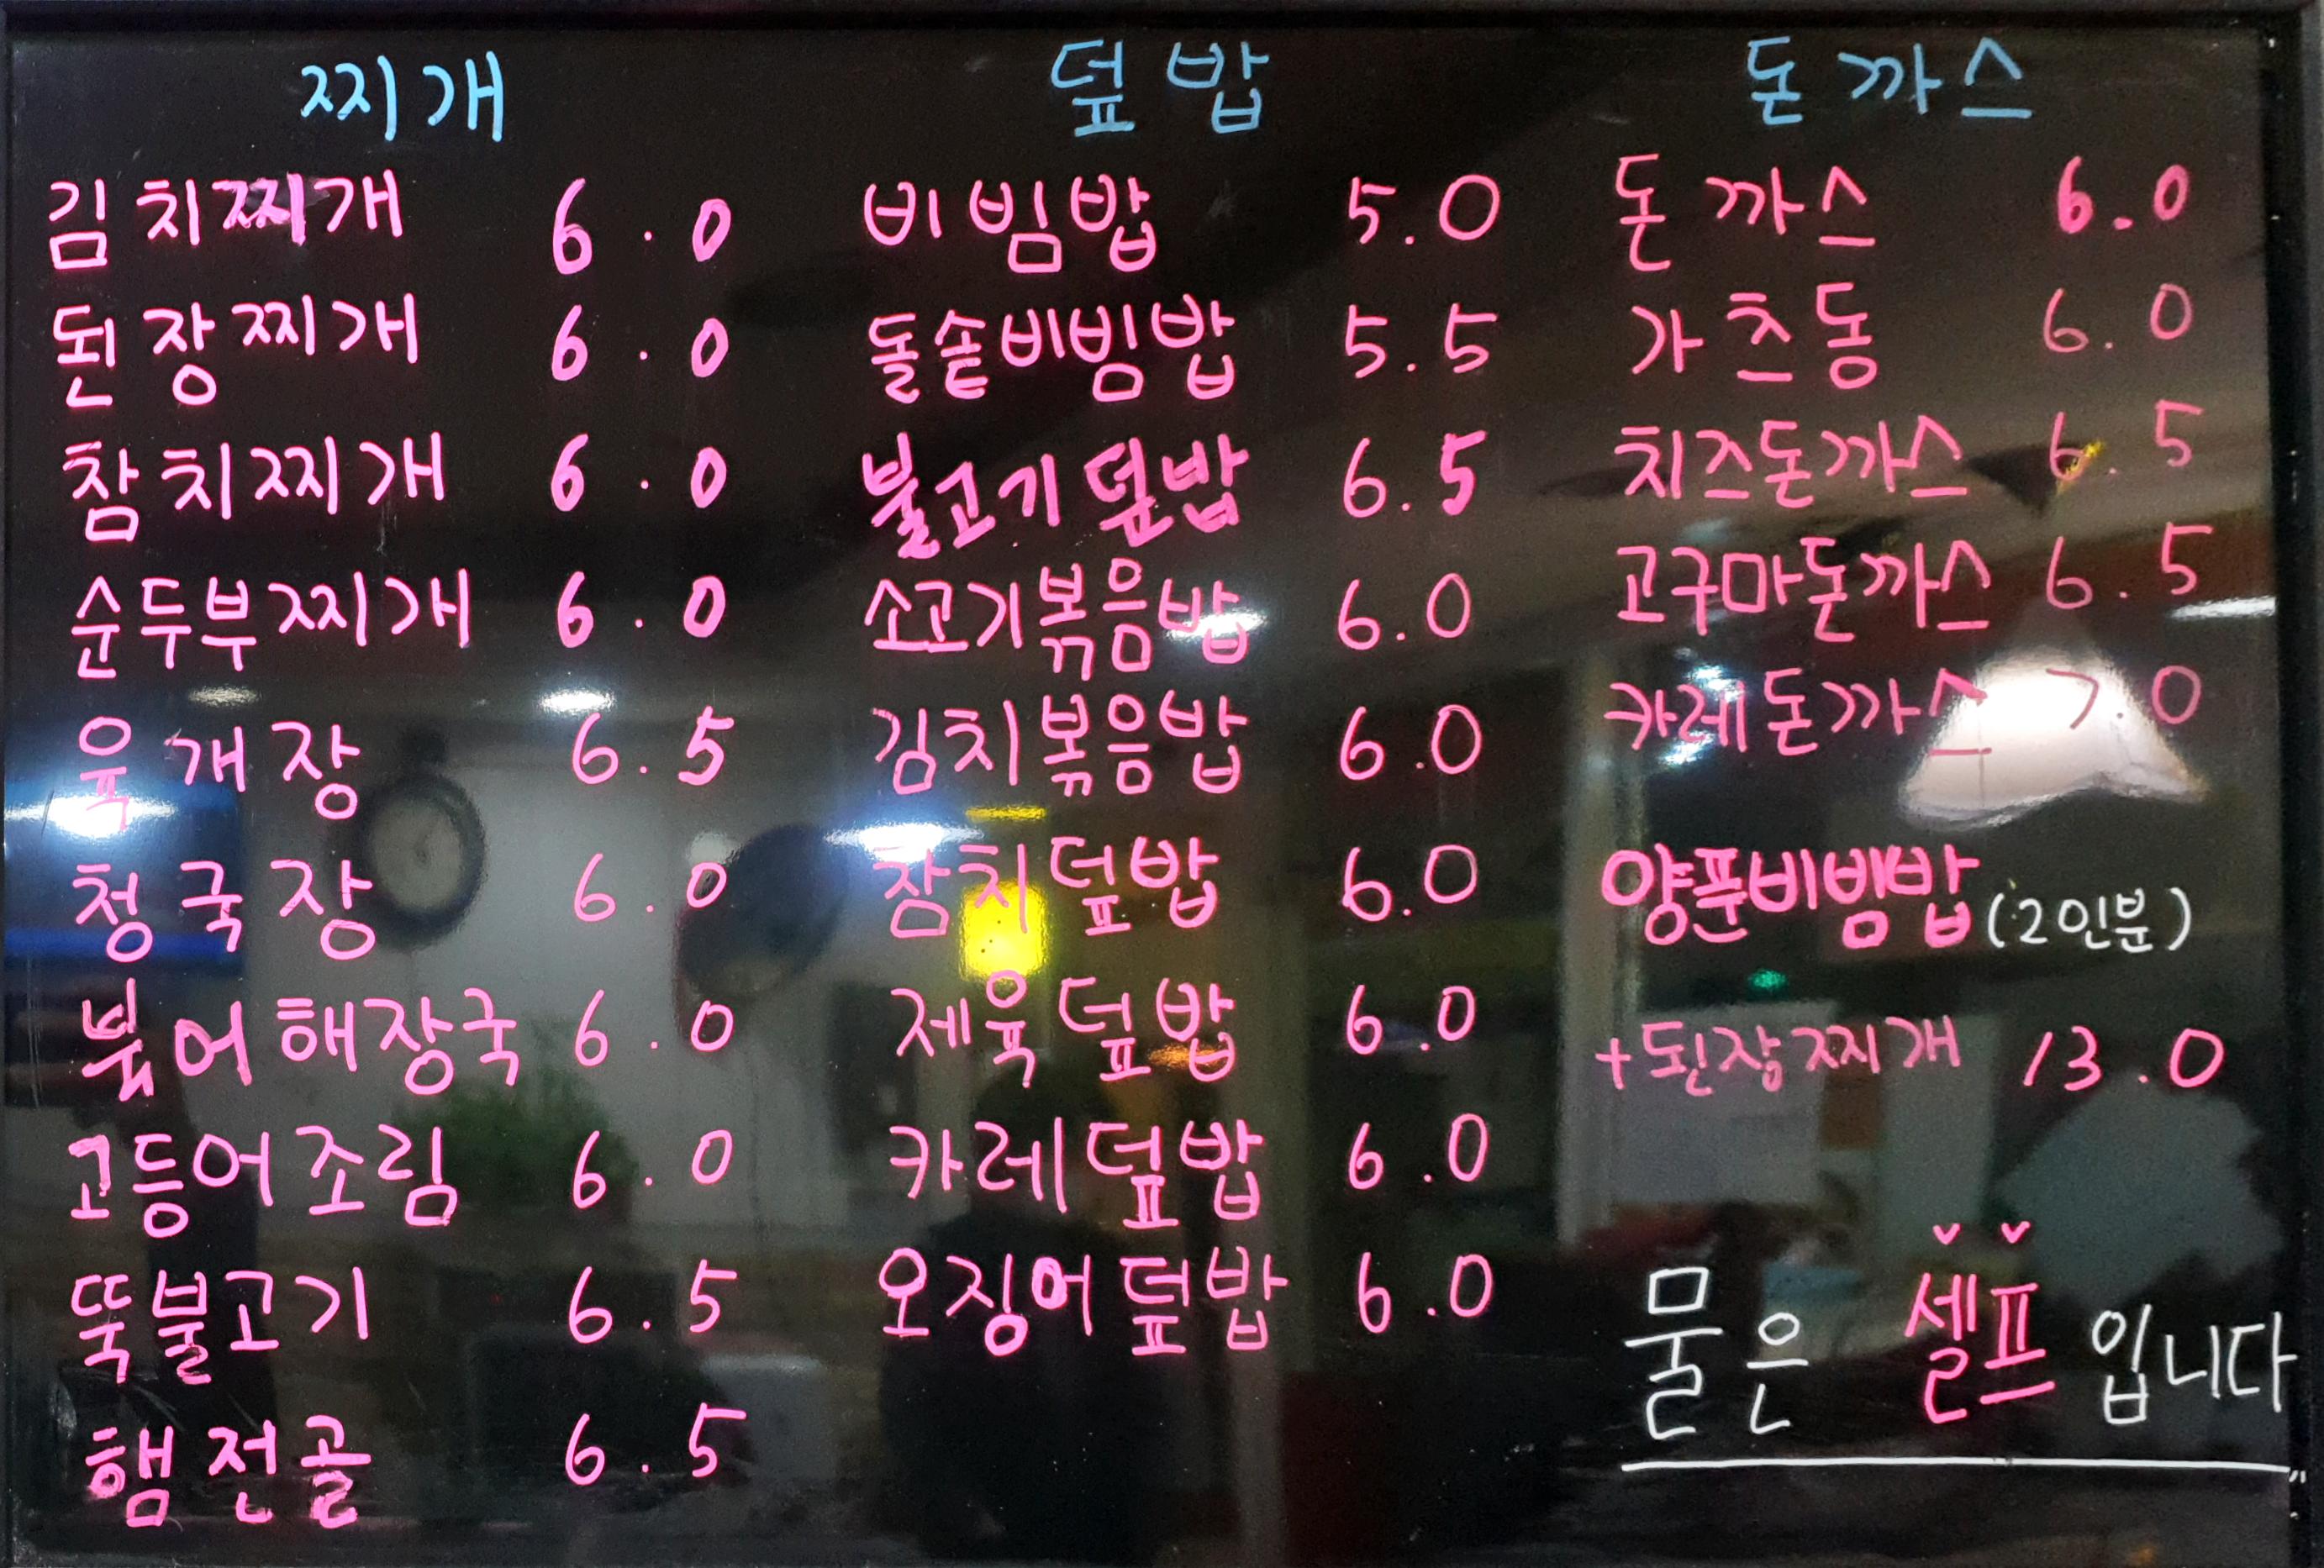 찌개
김치찌개 6.0
된장찌개 6.0
참치찌개 6.0
순두부찌개 6.0
육개장 6.5
청국장 6.0
붘어해장국 6.0
고등어조림 6.0
뚝불고기 6.5
햄전골 6.5
덮밥
비빔밥 5.0
돌솥비빔밥 5.5
불고기덮밥 6.5
소고기볶음밥 6.0
김치볶음밥 6.0
참치덮밥 6.0
제육덮밥 6.0
카레덮밥 6.0
오징어덮밥 6.0
돈까스
돈까스 6.0
가츠동 6.0
치즈돈까스 6.5
고구마돈까스 6.5
카레돈까스 7.0
양푼비빔밥 (2인분)
+된장찌개 13.0
물은 셀프 입니다